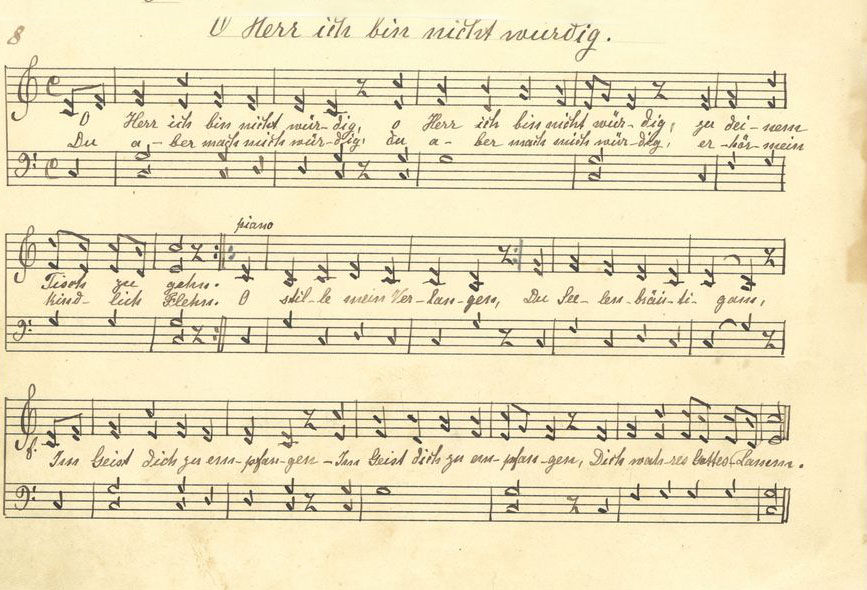 8
O Herr ich bin nicht würdig.
O Herr ich bin nicht wür-dig, o Herr ich bin nicht wür-dig, zu dei-nem
Du a-ber mach mich wür-dig, du a-ber mach mich wür-dig, er-hör mein
piano
Tisch zu gehn.
kind-lich Flehn. O stil-le mein Ver-lan-gen, Du See-len-bräu-ti-gam,
f. Im Geist dich zu em-pfan-gen - Im Geist dich zu em-pfan-gen, Dich wah-res Gottes Lamm.